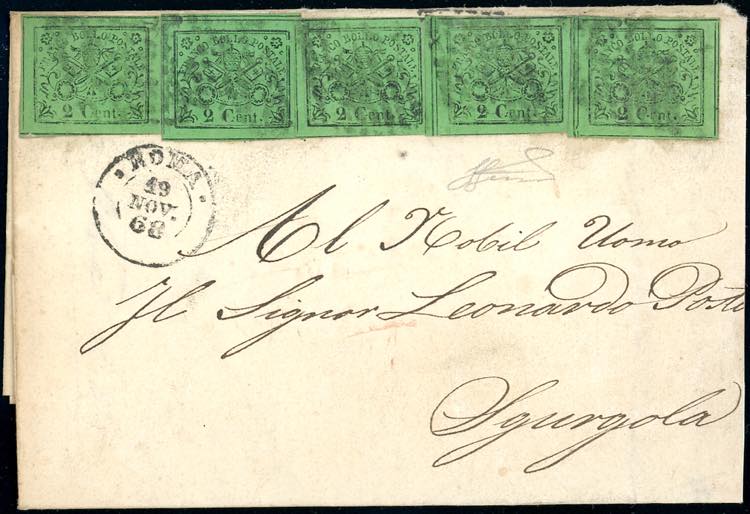 FRANCO BOLLO POSTALE
2 Cent.
FRANCO BOLLO POSTALE
2 Cent.
FRANCO BOLLO POSTALE
2 Cent.
FRANCO BOLLO POSTALE
2 Cent.
FRANCO BOLLO POSTALE
2 Cent.
ROMA
19
NOV.
68
Al Nobil Uomo
Il Signor Leonardo
Sgurgola